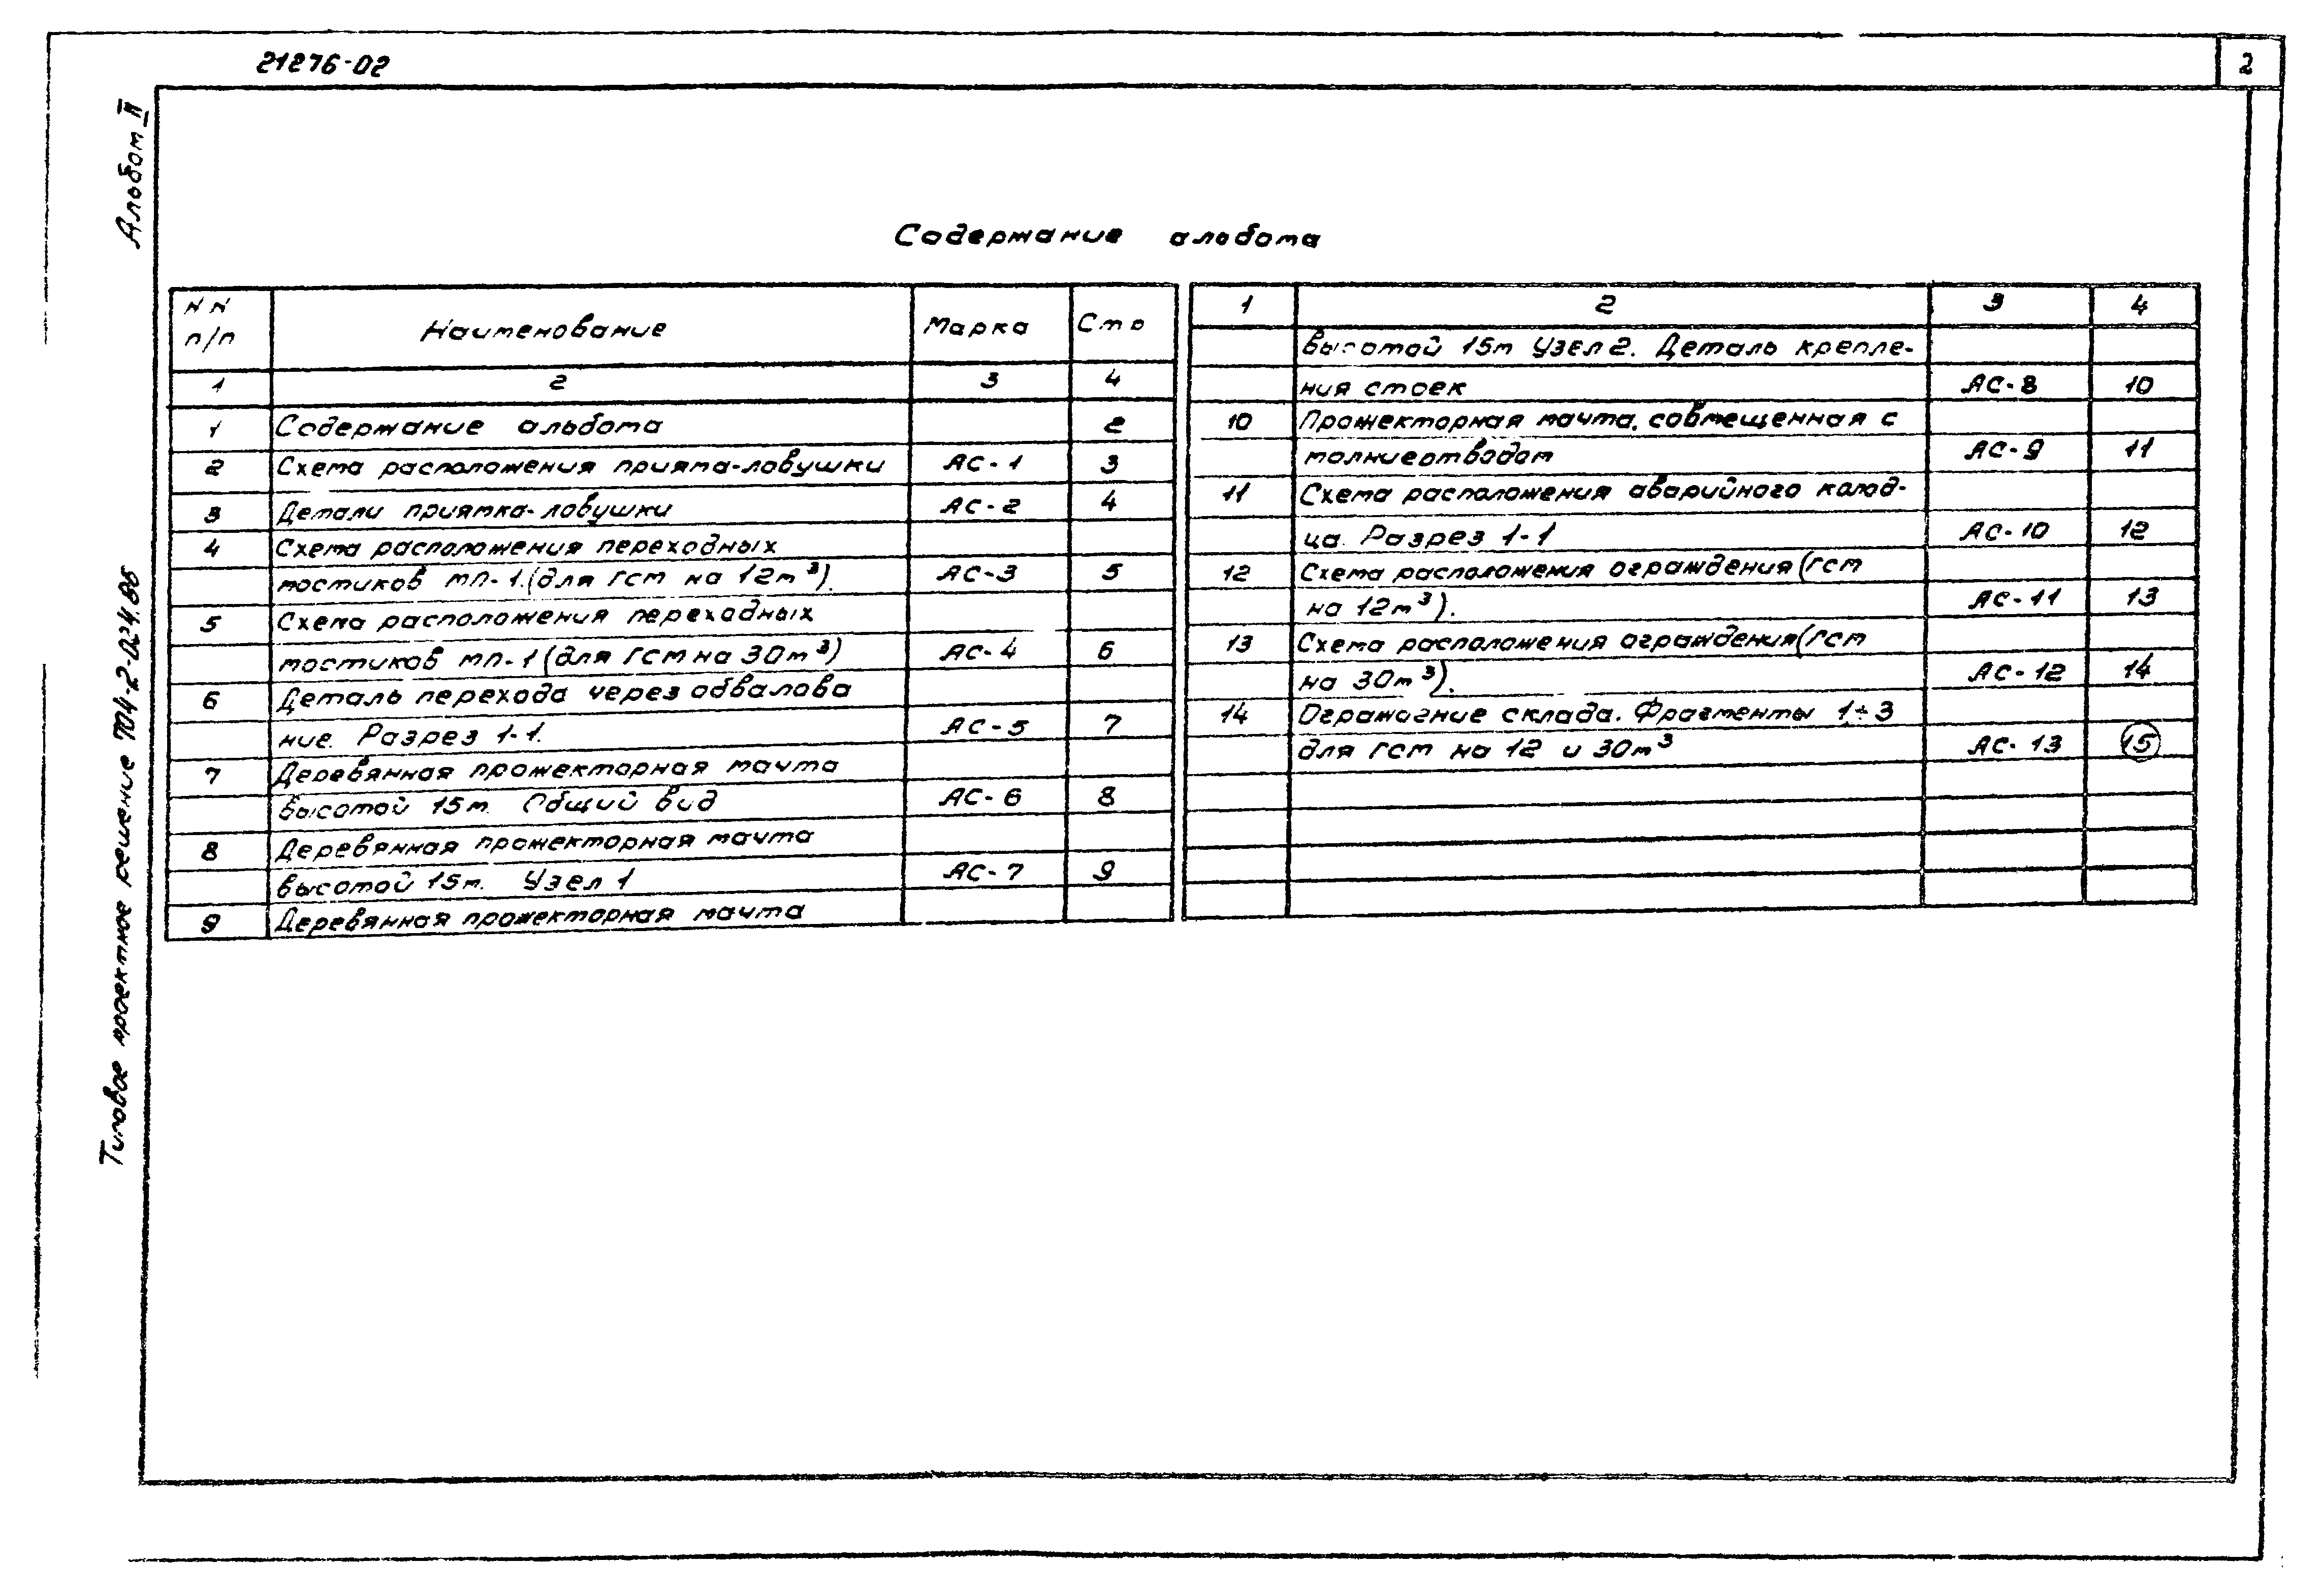 21276-02
2
Альбом II
Типовое проектное решение 704-2-024.85
Содержание альбома
NN п/п Наименование Марка Стр
1 2 3 4
1 Содержание альбома 2
2 Схема расположения приямка-ловушки АС-1 3
3 Детали приямка-ловушки АС-2 4
4 Схема расположения переходных
мостиков МП-1.(для ГСМ на 12м³). АС-3 5
5 Схема расположения переходных
мостиков МП-1 (для ГСМ на 30м³) АС-4 6
6 Деталь перехода через обвалова
ние. Разрез 1-1. АС-5 7
7 Деревянная прожекторная мачта
высотой 15м. Общий вид АС-6 8
8 Деревянная прожекторная мачта
высотой 15м. Узел 1 АС-7 9
9 Деревянная прожекторная мачта
1 2 3 4
высотой 15м Узел 2. Деталь крепле-
ния стоек АС-8 10
10 Прожекторная мачта, совмещенная с
молниеотводом АС-9 11
11 Схема расположения аварийного колод-
ца. Разрез 1-1 АС-10 12
12 Схема расположения ограждения (ГСМ
на 12м³). АС-11 13
13 Схема расположения ограждения (ГСМ
на 30м³). АС-12 14
14 склада. Фрагменты 1÷3
для ГСМ на 12 и 30м³ АС-13 15